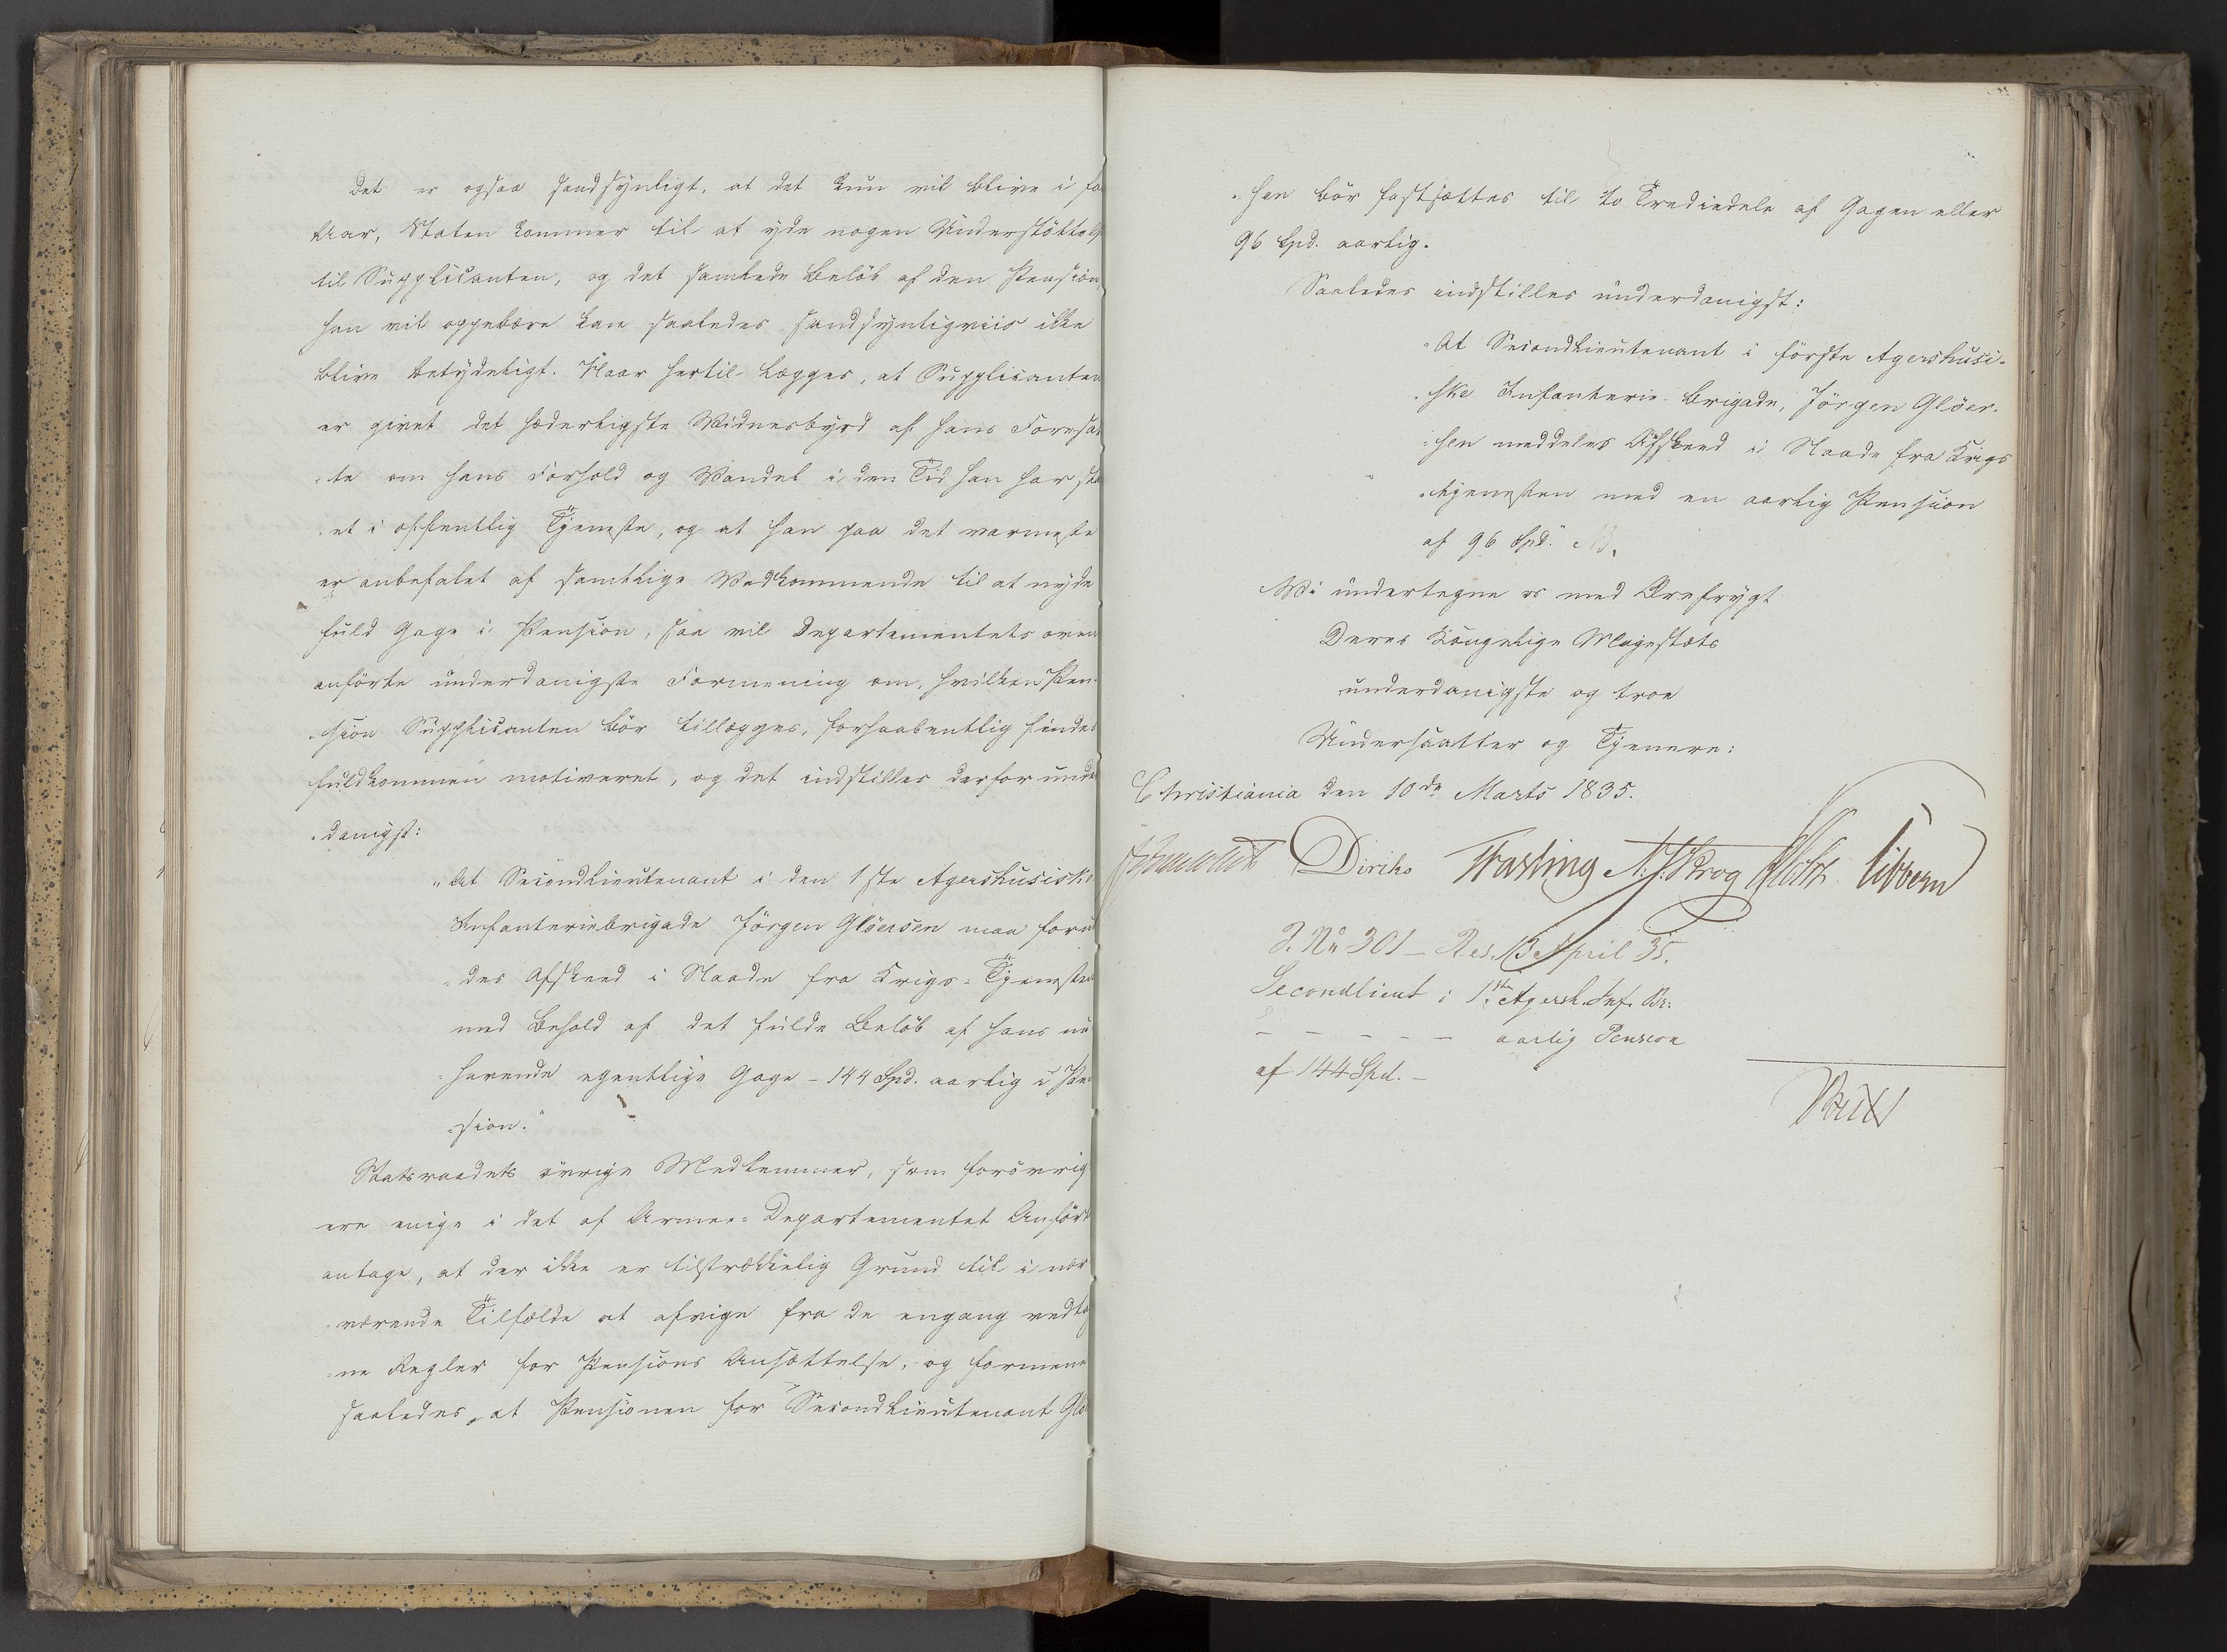 Det er ogsaa sandsynligt, at det kun vil blive i faa
Aar, Staten kommer til at yde nogen Understøttelse
til Supplicanten, og det samlede Beløb af den Pension
han vil oppebære kan saaledes sandsynligviis ikke
blive betydeligt. Naar hertil lægges, at Supplicanten
er givet det hæderligste Vidnesbyrd af hans Foresat-
te om hans Forhold og Vandel i den Tid han har sta-
et i offentlig Tjeneste, og at han paa det varmeste
er anbefalet af samtlige Vedkommende til at nyde
fuld Gage i Pension, saa vil Departementets oven
anførte underdanigste Formening om, hvilken Pen-
sion Supplicanten bør tillægges, forhaabentlig findes
fuldkommen motiveret, og det indstilles derfor under
danigst:
"At Secondlieutenant i den 1ste Agershusiske
Infanteriebrigade Jörgen Glöersen maa forun
des Afskeed i Naade fra Krigs-Tjenesten
med Behold af det fulde Beløb af hans nu
havende egentlige Gage - 144 Spd. aarlig i Pen
sion."
Statsraadets øvrige Medlemmer, som forøvrigt
ere enige i det af Armee-Departementet Anførte
antage, at der ikke er tilstrækkelig Grund til i nær
værende Tilfælde at afvige fra de engang vedtag
ne Regler for Pensions Ansættelse, og formene
saaledes, at Pensionen for Secondlieutenant Glö
sen bør fastsættes til to Trediedele af Gagen eller
96 Spd. aarlig.
Saaledes indstilles underdanigst:
"At Secondlieutenant i første Agershusi-
ske Infanterie-Brigade, Jörgen Glöer-
sen meddeles Afskeed i Naade fra Krigs
tjenesten med en aarlig Pension
af 96 Spd."
Vi undertegne os med Ærefrygt
Deres Kongelige Majestæts
underdanigste og troe
Undersaatter og Tjenere:
Christiania den 10de Marts 1835.
Diriks Fasting N. J. Krog Vibbern
J. No 301 - Res. 13 April 35.
Secondlieut i 1ste Agersh. Inf. Br:
- - - - - aarlig Pension
af 144 Spd. -